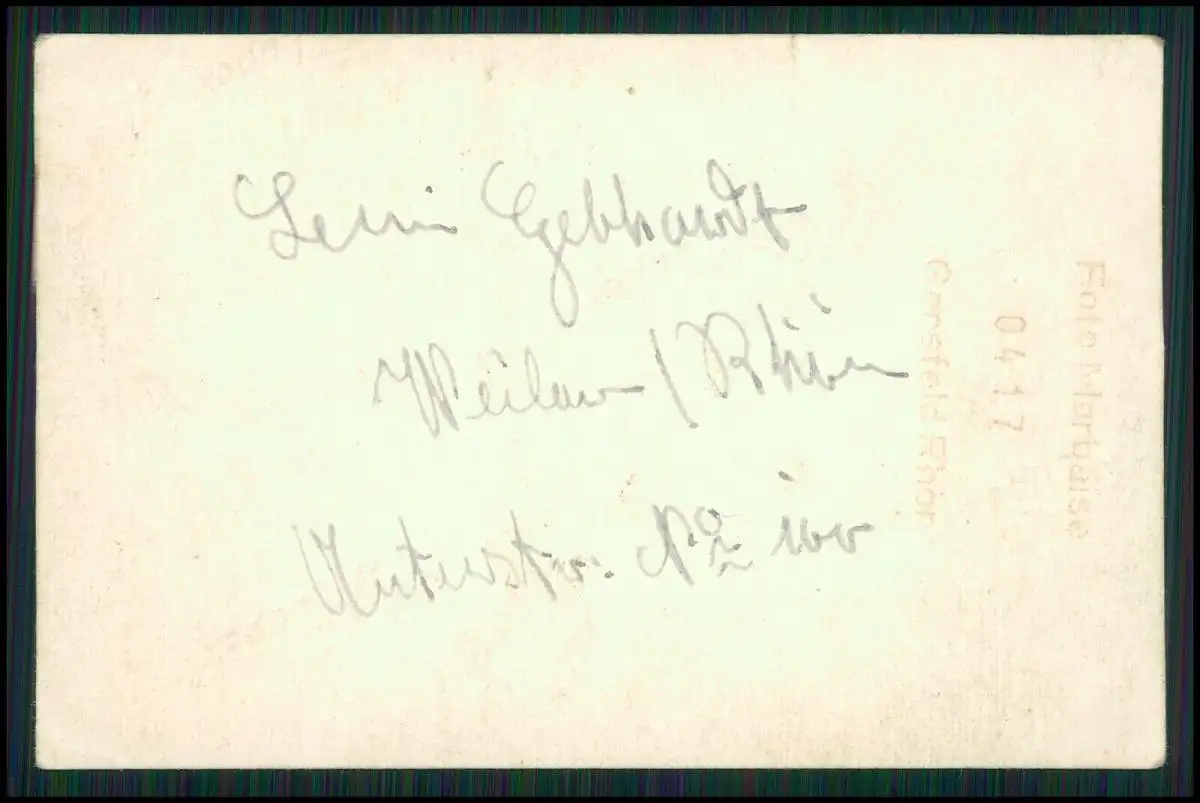 Leni Gebhardt
Weilar / Rhön
Unterstr. No 100
Foto Marbaise
0417
Gersfeld Rhön